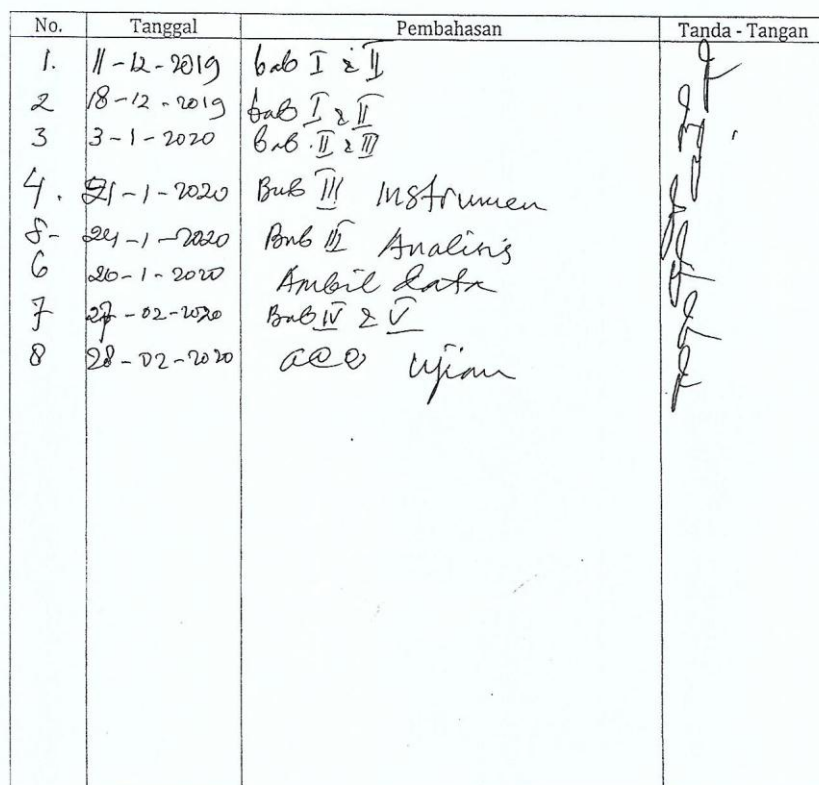 No. Tanggal Pembahasan Tanda - Tangan
1. 11-12-2019 bab I & II
2 18-12-2019 bab I & II
3 3-1-2020 bab II & III
4. 21-1-2020 Bab III Instrumen
5- 24-1-2020 Bab III Analisis
6 26-1-2020 Ambil data
7 27-02-2020 Bab IV & V
8 28-02-2020 acc ujian